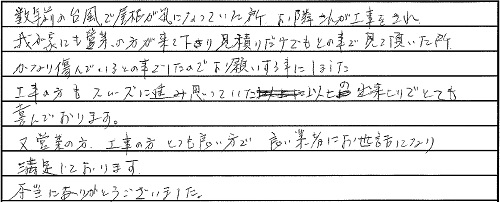 数年前の台風で屋根が気になっていた所 お隣さんが工事をされ
我が家にも営業の方が来て下さり見積りだけでもとの事で見て頂いた所
かなり傷んでいるとの事でしたのでお願いする事にしました
工事の方もスムーズに進み思っていた以上の出来上りでとても
喜んでおります。
又営業の方、工事の方とても良い方で 良い業者にお世話になり
満足しております
本当にありがとうございました。